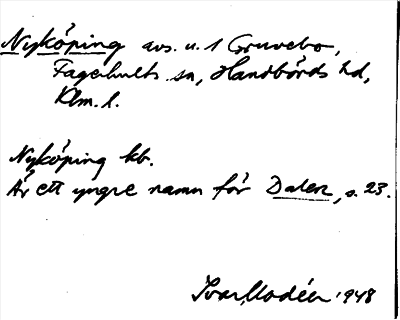 Nyköping avs. u. 1 Gruvebo,
Fagerhults sn, Handbörds hd,
Klm. l.
Nyköping kb.
Är ett yngre namn för Dalen, s. 23.
Ivar Modéer 1948